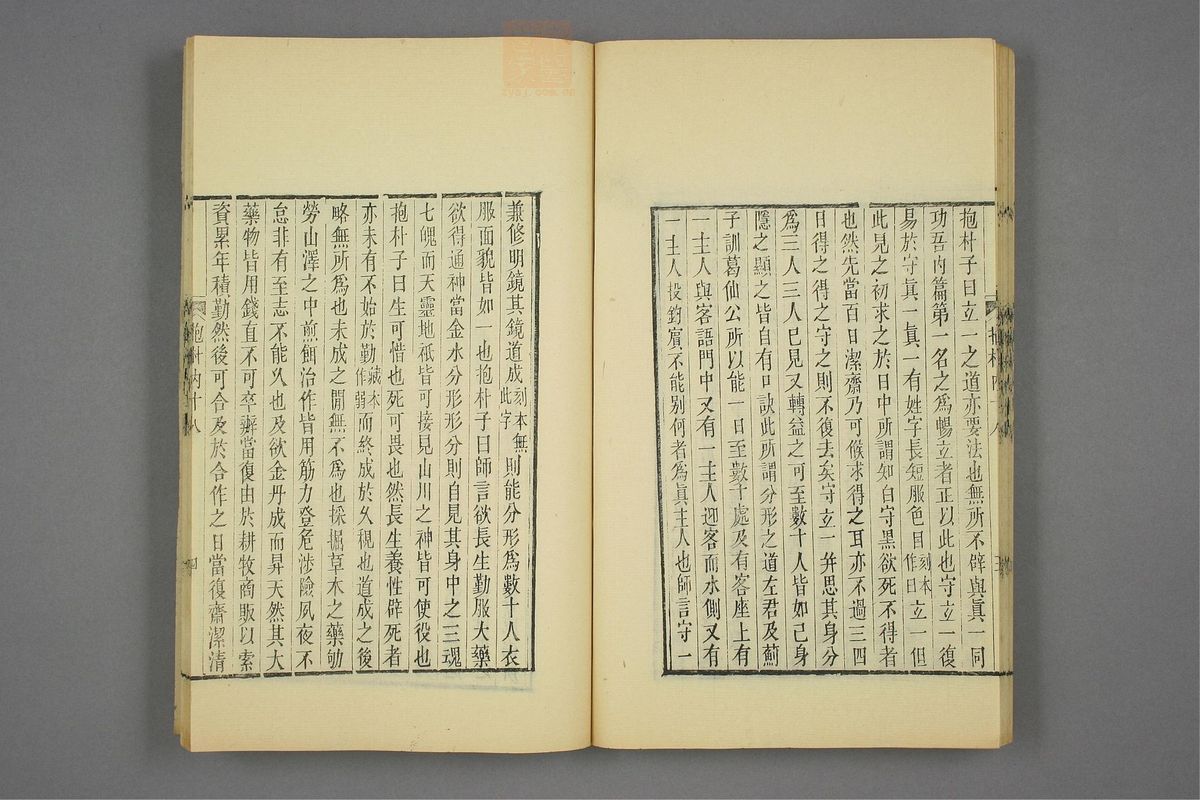 抱朴子曰立一之道亦要法也無所不辟與眞一同
功吾內篇第一名之爲暢立者正以此也守立一復
易於守眞一眞一有姓字長短服色目刻本作曰立一但
此見之初求之於日中所謂知白守黑欲死不得者
也然先當百日潔齋乃可候求得之耳亦不過三四
日得之得之守之則不復去矣守立一幷思其身分
爲三人三人已見又轉益之可至數十人皆如己身
隱之顯之皆自有口訣此所謂分形之道左君及薊
子訓葛仙公所以能一日至數十處及有客座上有
一主人與客語門中又有一主人迎客而水側又有
一主人投釣賓不能别何者爲眞主人也師言守一
兼修明鏡其鏡道成刻本無此字則能分形爲數十人衣
服面貌皆如一也抱朴子曰師言欲長生勤服大藥
欲得通神當金水分形形分則自見其身中之三魂
七魄而天靈地祇皆可接見山川之神皆可使役也
抱朴子曰生可惜也死可畏也然長生養性辟死者
亦未有不始於勤藏本作弱而終成於久視也道成之後
略無所爲也未成之閒無不爲也採掘草木之藥劬
勞山澤之中煎餌治作皆用筋力登危涉險夙夜不
怠非有至志不能久也及欲金丹成而昇天然其大
藥物皆用錢直不可卒辦當復由於耕牧商販以索
資累年積勤然後可合及於合作之日當復齋潔清
抱朴內十八
四